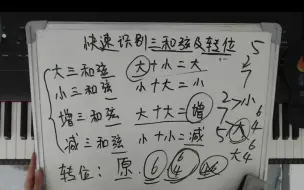 快速识别三和弦及转位
大三和弦 大+小=大
小三和弦 小+大=小
增三和弦 大+大=增
减三和弦 小+小=减
转位：原 6 6 4
5
2
7
2>小
7
5 大 6 4
大 6 4